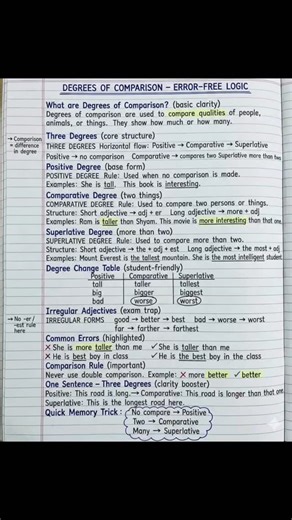 DEGREES OF COMPARISON – ERROR-FREE LOGIC
What are Degrees of Comparison? (basic clarity)
Degrees of comparison are used to compare qualities of people,
animals, or things. They show how much or how many.
→ Comparison
= difference
in degree
Three Degrees (core structure)
THREE DEGREES Horizontal flow: Positive → Comparative → Superlative
Positive → no comparison Comparative → compares two Superlative more than two
Positive Degree (base form)
POSITIVE DEGREE Rule: Used when no comparison is made.
Examples: She is tall. This book is interesting.
Comparative Degree (two things)
COMPARATIVE DEGREE Rule: Used to compare two persons or things.
Structure: Short adjective → adj + er Long adjective → more + adj
Examples: Ram is taller than Shyam. This movie is more interesting than that one.
Superlative Degree (more than two)
SUPERLATIVE DEGREE Rule: Used to compare more than two.
Structure: Short adjective → the + adj + est Long adjective → the most + adj
Examples: Mount Everest is the tallest mountain. She is the most intelligent student
Degree Change Table (student-friendly)
Positive Comparative Superlative
tall taller tallest
big bigger biggest
bad worse worst
Irregular Adjectives (exam trap)
→ No -er /
-est rule
here
IRREGULAR FORMS good → better → best bad → worse → worst
far → farther → farthest
Common Errors (highlighted)
✗ She is more taller than me ✓ She is taller than me
✗ He is best boy in class ✓ He is the best boy in the class
Comparison Rule (important)
Never use double comparison. Example: ✗ more better ✓ better
One Sentence – Three Degrees (clarity booster)
Positive: This road is long. → Comparative: This road is longer than that one.
Superlative: This is the longest road here.
Quick Memory Trick: No compare → Positive
Two → Comparative
Many → Superlative